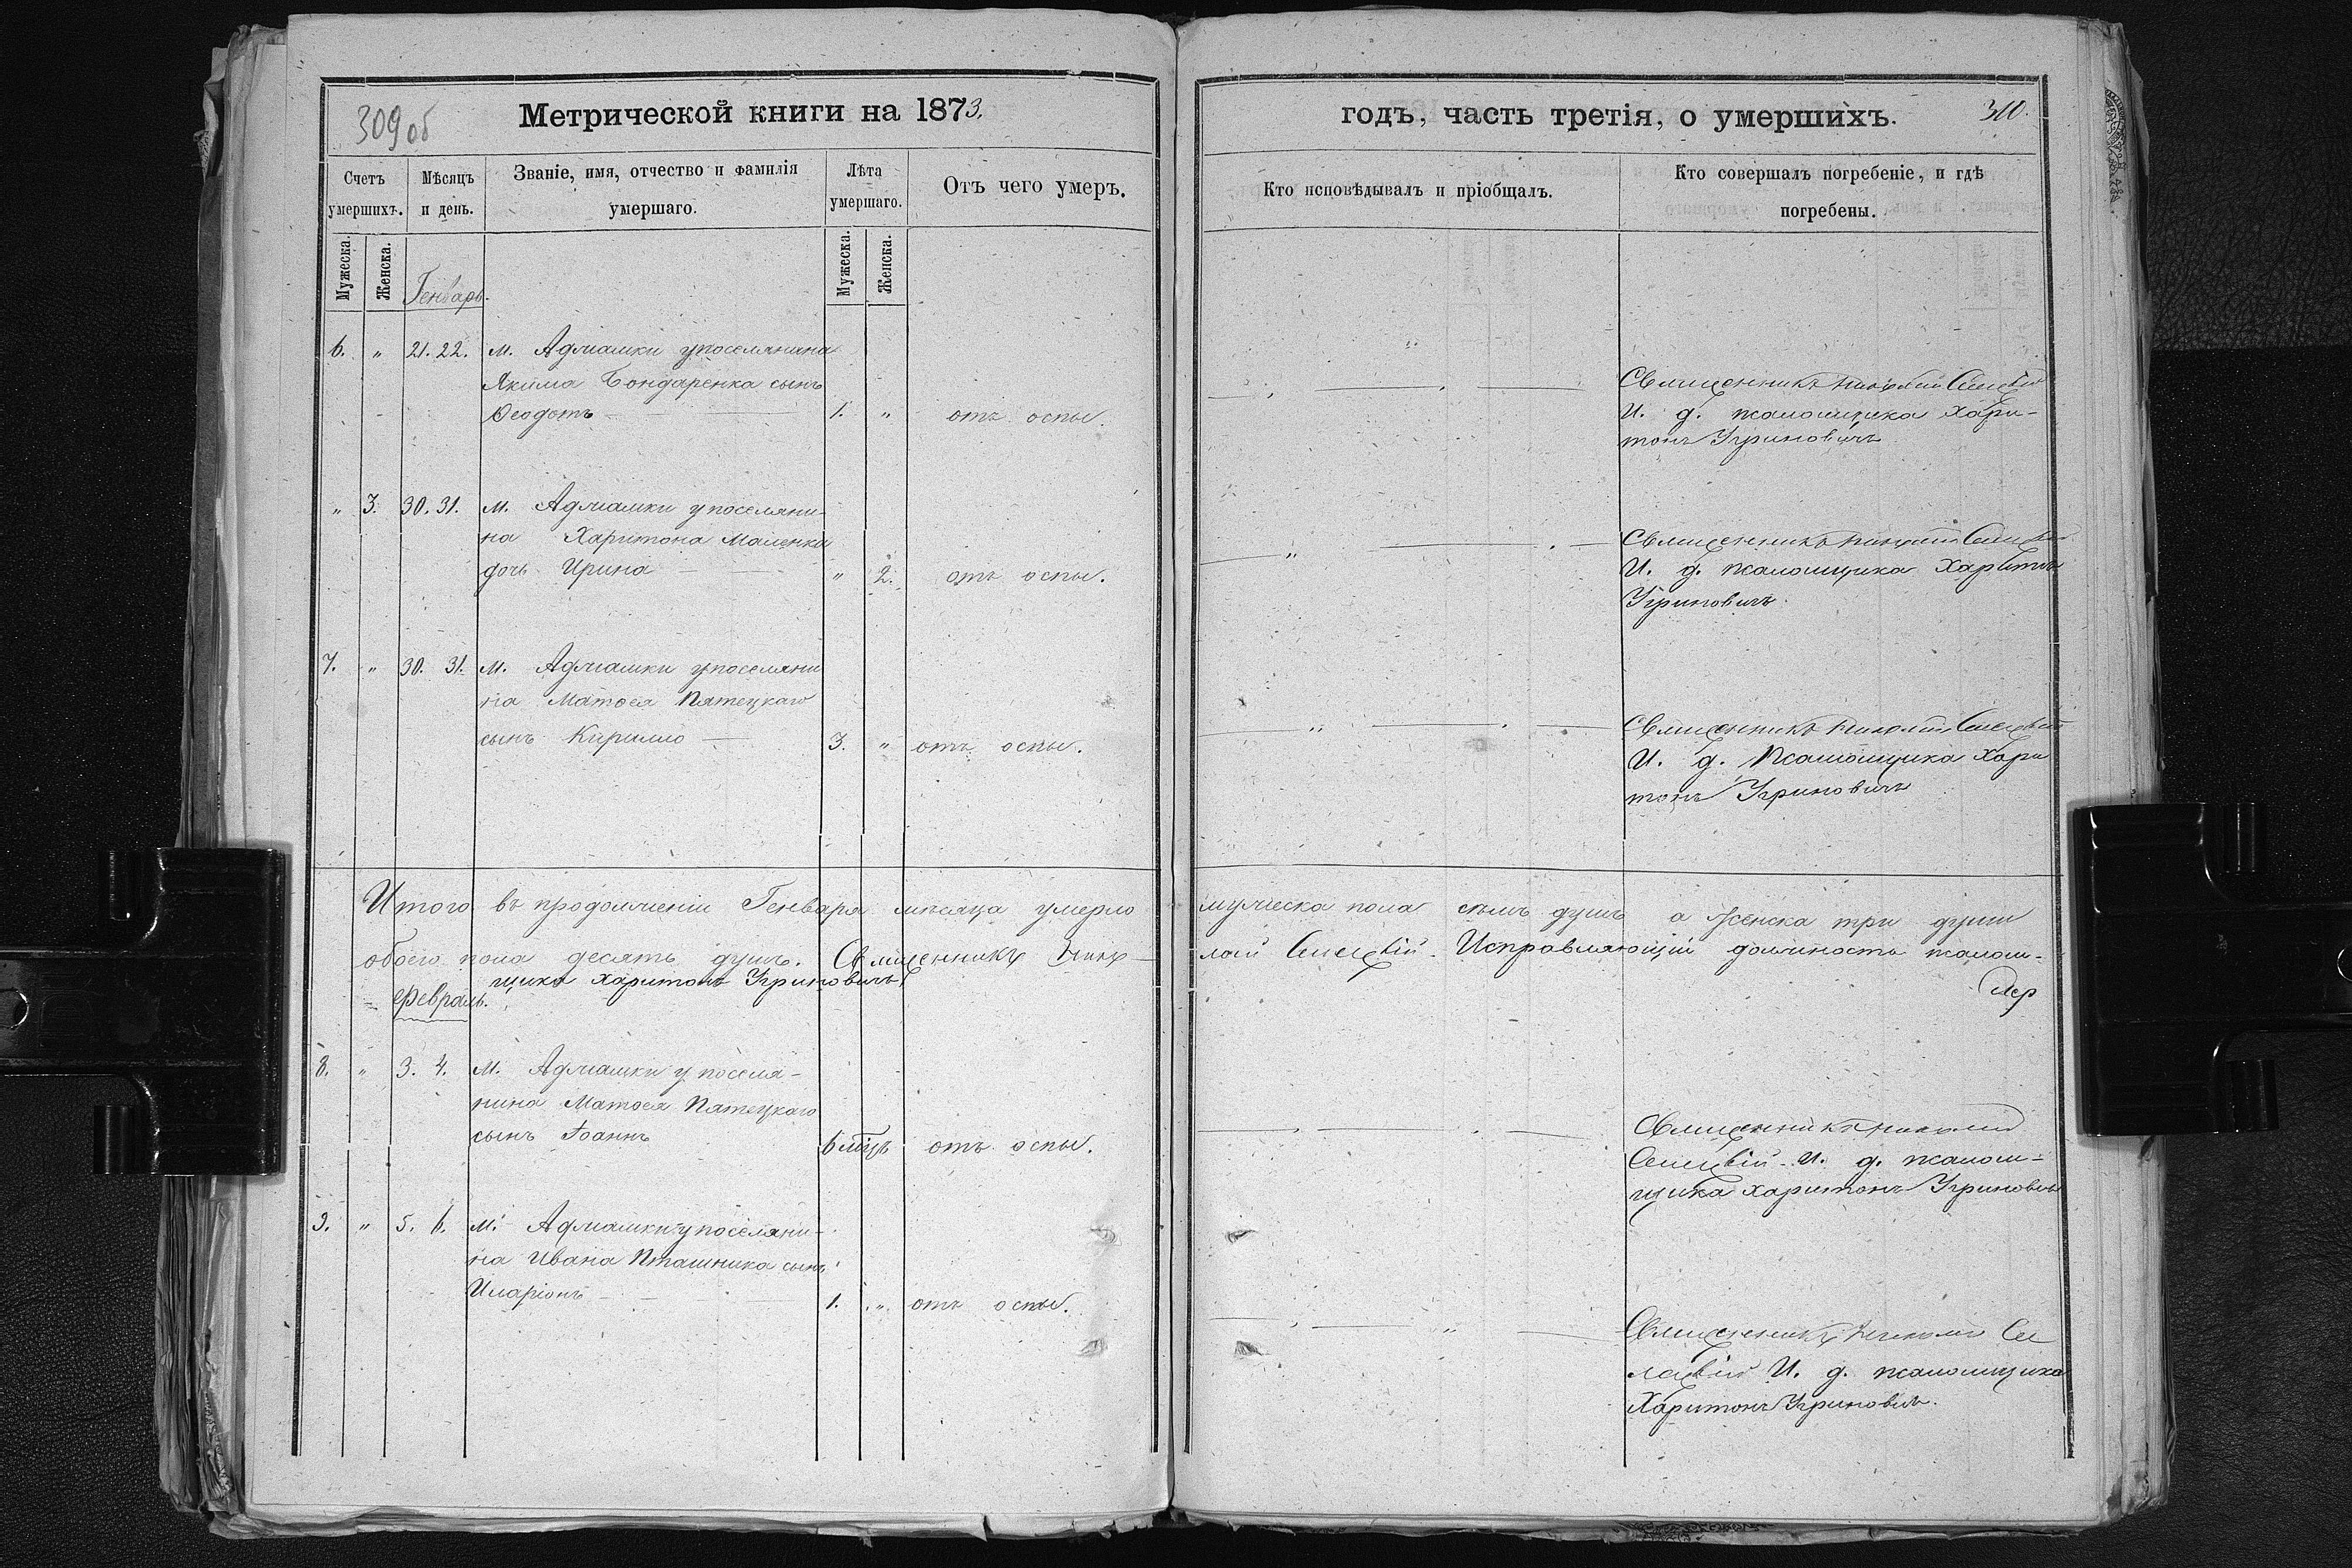 309 об
Метрической книги на 1873.
Счетъ умершихъ.
Мѣсяцъ и день.
Званіе, имя, отчество и фамилія умершаго.
Лѣта умершаго.
Отъ чего умеръ.
Мужеска.
Женска.
Мужеска.
Женска.
Генварь.
6. " 21. 22. м. Адмамки у поселянина
Якима Бондаренка сынъ
Ѳеодотъ 1. " отъ оспы.
" 3. 30. 31. м. Адмамки у поселяни-
на Харитона Маленки
дочь Ирина " 2. отъ оспы.
7. " 30. 31. м. Адмамки у поселяни
на Матѳея Пятецкаго
сынъ Кирилло 3. " отъ оспы.
Итого въ продолженіи Генваря мѣсяца умерло
обоего пола десять душъ. Священникъ Нико-
щика Харитонъ Угриновичъ
Февраль.
8. " 3. 4. м. Адмамки у поселя-
нина Матѳея Пятецкаго
сынъ Іоаннъ 6 мцъ отъ оспы.
9. " 5. 6. м. Адмамки у поселяни-
на Ивана Пташника сынъ
Иларіонъ 1. " отъ оспы.
годъ, часть третія, о умершихъ.
310.
Кто исповѣдывалъ и пріобщалъ.
Кто совершалъ погребеніе, и гдѣ погребены.
Священникъ Николай
И. д. псаломщика Хари-
тонъ Угриновичъ
Священникъ Николай
И. д. псаломщика Харитонъ
Угриновичъ.
Священникъ Николай
И. д. Псаломщика Хари
тонъ Угриновичъ
мужеска пола семь душъ а женска три души
лай Исправляющій должность псалом-
Священникъ Николай
И. д. псалом-
щика Харитонъ Угриновичъ
Священникъ Николай
И. д. псаломщика
Харитонъ Угриновичъ.